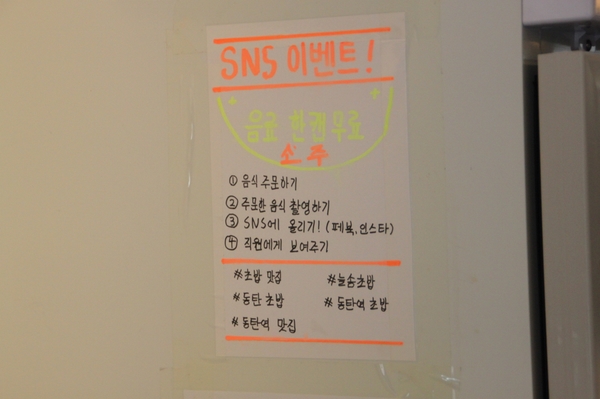 SNS 이벤트!
음료 한캔 무료
소주
① 음식 주문하기
② 주문한 음식 촬영하기
③ SNS에 올리기! (페북, 인스타)
④ 직원에게 보여주기
#초밥 맛집 #늘솜초밥
#동탄 초밥 #동탄역 초밥
#동탄역 맛집